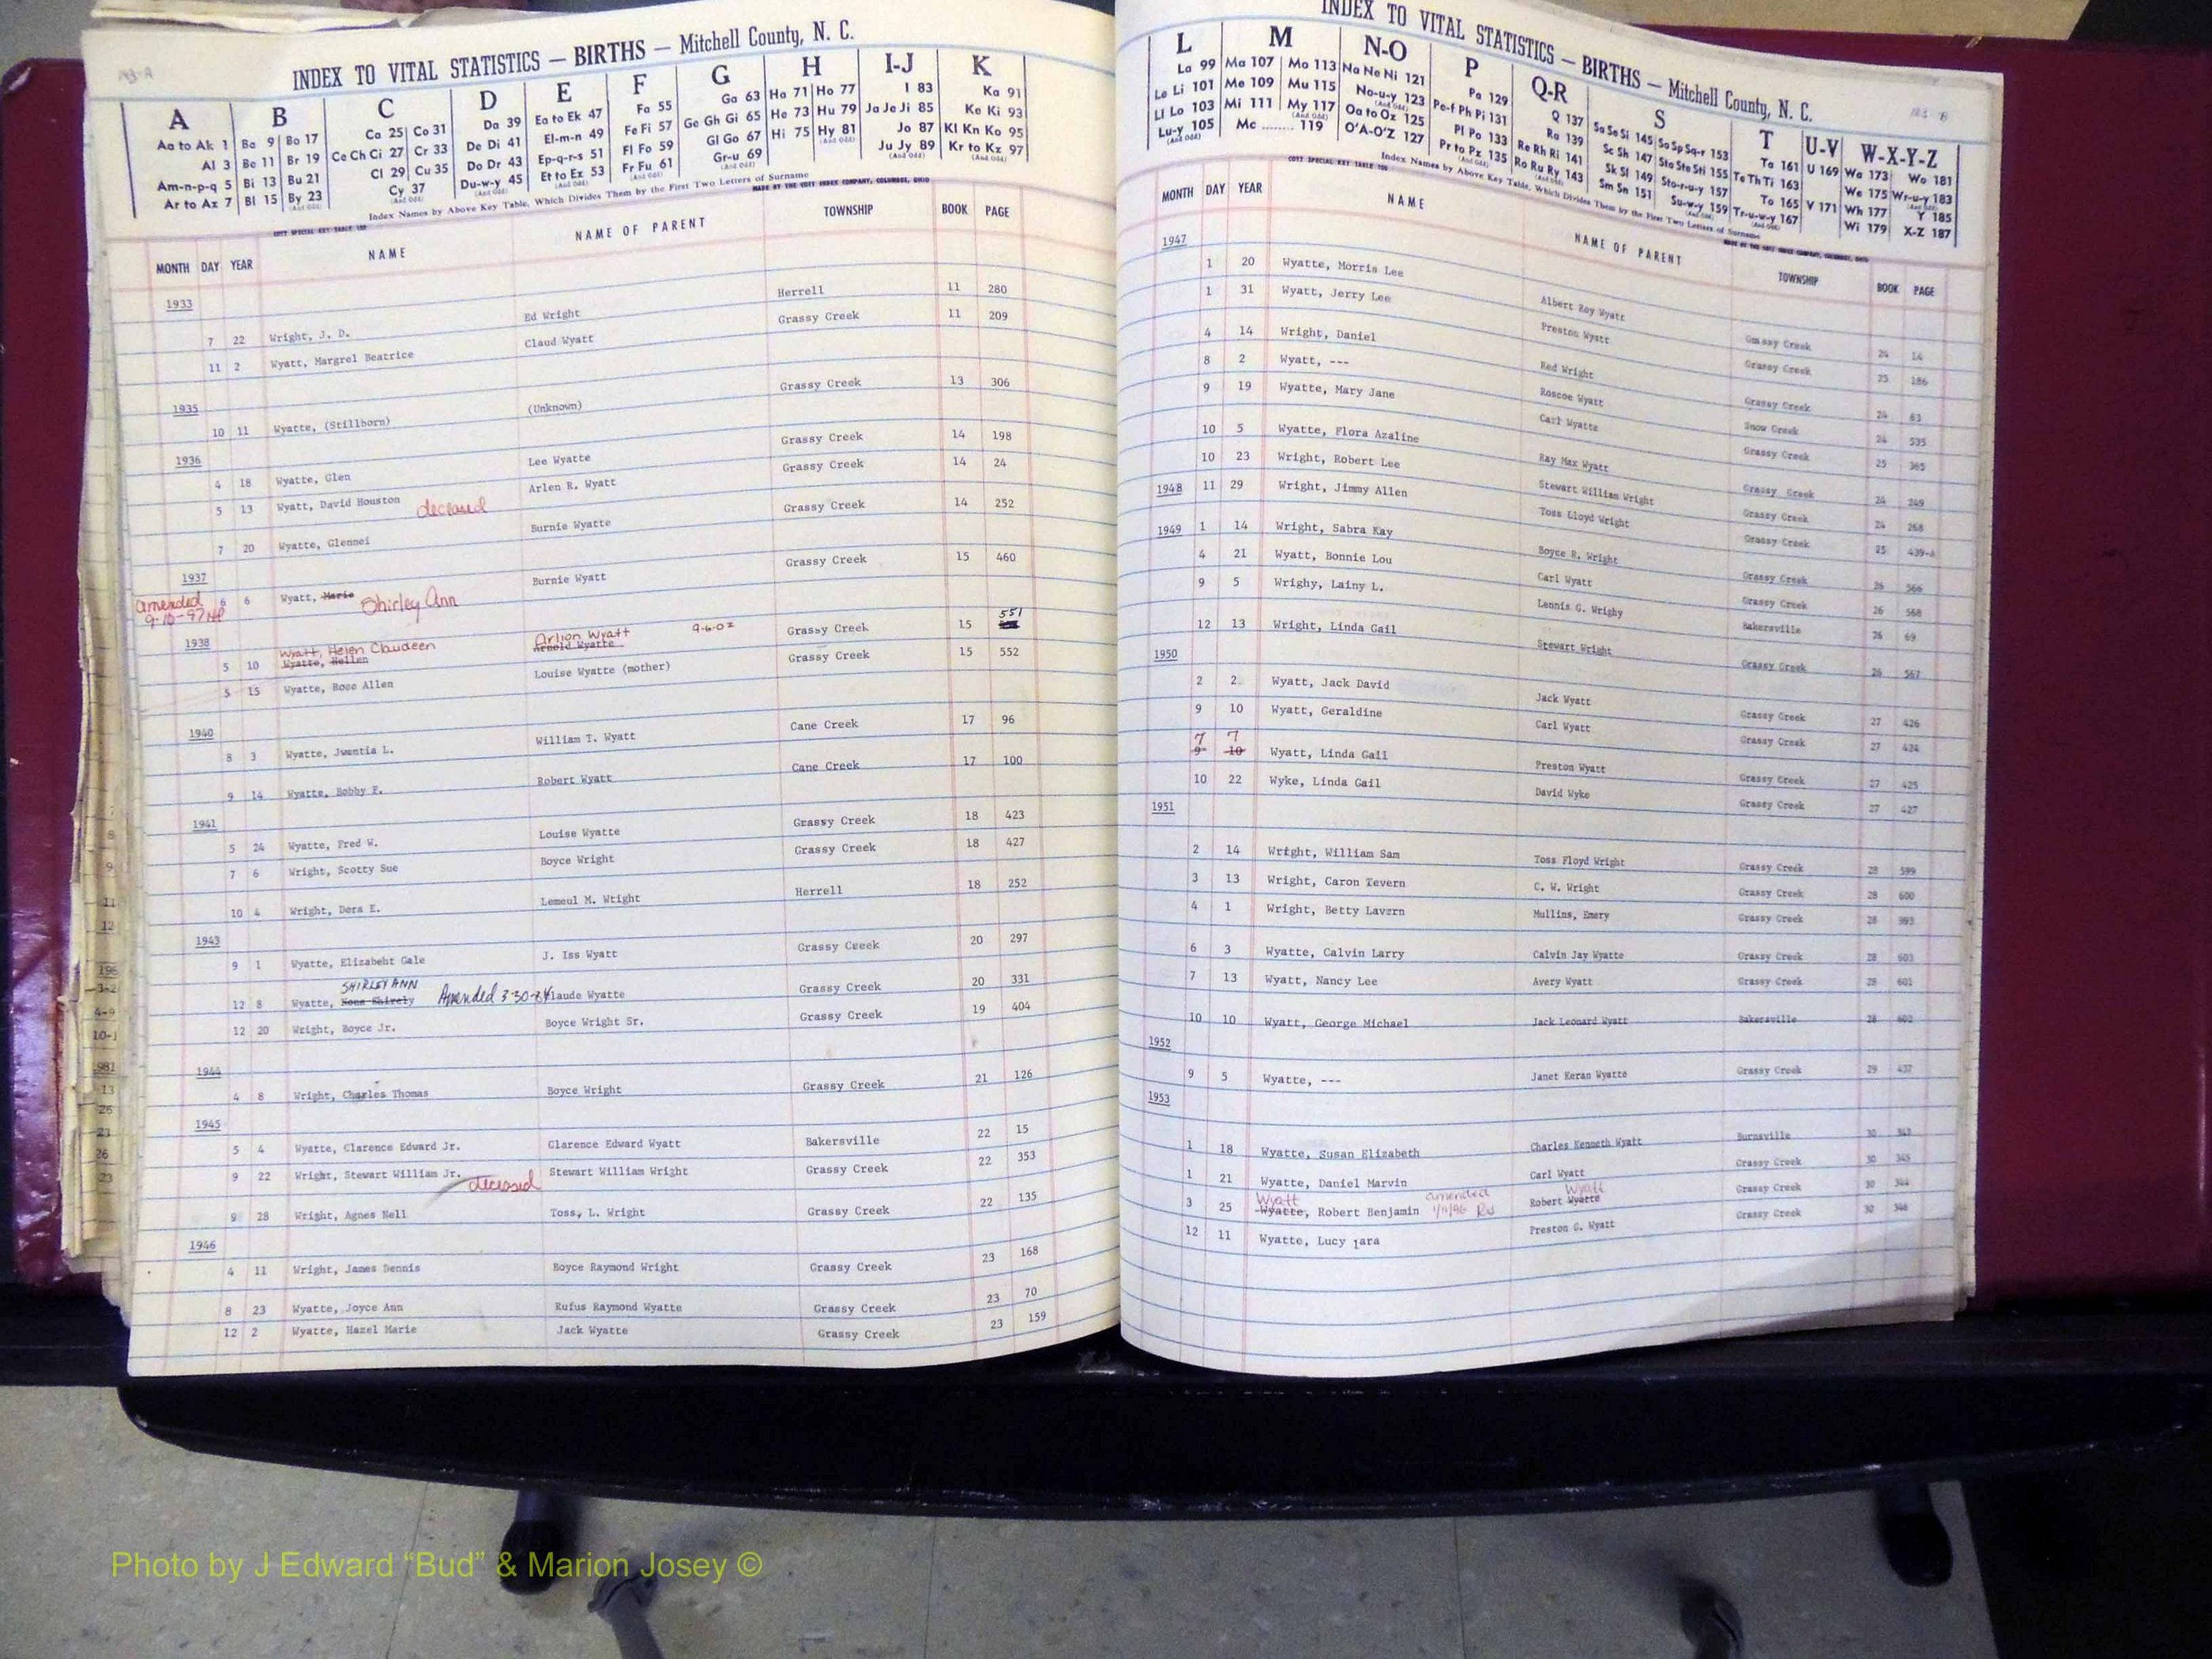 183-A
INDEX TO VITAL STATISTICS — BIRTHS — Mitchell County, N. C.
A B C D E F G H I-J K
Aa to Ak 1 Ba 9 Bo 17 Ca 25 Co 31 Da 39 Ea to Ek 47 Fa 55 Ga 63 Ha 71 Ho 77 I 83 Ka 91
Al 3 Be 11 Br 19 Ce Ch Ci 27 Cr 33 De Di 41 El-m-n 49 Fe Fi 57 Ge Gh Gi 65 He 73 Hu 79 Ja Je Ji 85 Ke Ki 93
Am-n-p-q 5 Bi 13 Bu 21 Cl 29 Cu 35 Do Dr 43 Ep-q-r-s 51 Fl Fo 59 Gl Go 67 Hi 75 Hy 81 Jo 87 Kl Kn Ko 95
Ar to Az 7 Bl 15 By 23 Cy 37 Du-w-y 45 Et to Ez 53 Fr Fu 61 Gr-u 69 Ju Jy 89 Kr to Kz 97
Index Names by Above Key Table, Which Divides Them by the First Two Letters of Surname
COTT SPECIAL KEY TABLE 100 MADE BY THE COTT INDEX COMPANY, COLUMBUS, OHIO
MONTH DAY YEAR NAME NAME OF PARENT TOWNSHIP BOOK PAGE
1933
7 22 Wright, J. D. Ed Wright Herrell 11 280
11 2 Wyatt, Margrel Beatrice Claud Wyatt Grassy Creek 11 209
1935
10 11 Wyatte, (Stillborn) (Unknown) Grassy Creek 13 306
1936
4 18 Wyatte, Glen Lee Wyatte Grassy Creek 14 198
5 13 Wyatt, David Houston deceased Arlen R. Wyatt Grassy Creek 14 24
7 20 Wyatte, Glennei Burnie Wyatte Grassy Creek 14 252
1937
amended 9-10-97 6 6 Wyatt, Marie Shirley Ann Burnie Wyatt Grassy Creek 15 460
1938
Wyatt, Helen Claudeen Arlion Wyatt 9-6-02 551
5 10 Wyatte, Hellen Arnold Wyatte Grassy Creek 15
5 15 Wyatte, Rose Allen Louise Wyatte (mother) Grassy Creek 15 552
1940
8 3 Wyatte, Jwentia L. William T. Wyatt Cane Creek 17 96
9 14 Wyatte, Bobby F. Robert Wyatt Cane Creek 17 100
1941
5 24 Wyatte, Fred W. Louise Wyatte Grassy Creek 18 423
7 6 Wright, Scotty Sue Boyce Wright Grassy Creek 18 427
10 4 Wright, Dora E. Lemeul M. Wtight Herrell 18 252
1943
9 1 Wyatte, Elizabeht Gale J. Iss Wyatt Grassy Cseek 20 297
SHIRLEY ANN
12 8 Wyatte, Nona Shirely Amended 3-30-84 Claude Wyatte Grassy Creek 20 331
12 20 Wright, Boyce Jr. Boyce Wright Sr. Grassy Creek 19 404
1944
4 8 Wright, Charles Thomas Boyce Wright Grassy Creek 21 126
1945
5 4 Wyatte, Clarence Edward Jr. Clarence Edward Wyatt Bakersville 22 15
9 22 Wright, Stewart William Jr. deceased Stewart William Wright Grassy Creek 22 353
9 28 Wright, Agnes Nell Toss, L. Wright Grassy Creek 22 135
1946
4 11 Wright, James Dennis Boyce Raymond Wright Grassy Creek 23 168
8 23 Wyatte, Joyce Ann Rufus Raymond Wyatte Grassy Creek 23 70
12 2 Wyatte, Hazel Marie Jack Wyatte Grassy Creek 23 159
INDEX TO VITAL STATISTICS — BIRTHS — Mitchell County, N. C.
L M N-O P Q-R S T U-V W-X-Y-Z
La 99 Ma 107 Mo 113 Na Ne Ni 121 Pa 129 Q 137 Sa Se Si 145 So Sp Sq-r 153 Ta 161 U 169 Wa 173 Wo 181
Le Li 101 Me 109 Mu 115 No-u-y 123 Pe-f Ph Pi 131 Ra 139 Sc Sh 147 Sta Ste Sti 155 Te Th Ti 163 We 175 Wr-u-y 183
Ll Lo 103 Mi 111 My 117 Oa to Oz 125 Pl Po 133 Re Rh Ri 141 Sk Sl 149 Sto-r-u-y 157 To 165 V 171 Wh 177 Y 185
Lu-y 105 Mc 119 O'A-O'Z 127 Pr to Pz 135 Ro Ru Ry 143 Sm Sn 151 Su-w-y 159 Tr-u-w-y 167 Wi 179 X-Z 187
Index Names by Above Key Table, Which Divides Them by the First Two Letters of Surname
COTT SPECIAL KEY TABLE 100 MADE BY THE COTT INDEX COMPANY, COLUMBUS, OHIO
MONTH DAY YEAR NAME NAME OF PARENT TOWNSHIP BOOK PAGE
1947
1 20 Wyatte, Morris Lee Albert Roy Wyatt Grassy Creek 24 14
1 31 Wyatt, Jerry Lee Preston Wyatt Grassy Creek 25 186
4 14 Wright, Daniel Red Wright Grassy Creek 24 63
8 2 Wyatt, --- Roscoe Wyatt Snow Creek 24 535
9 19 Wyatte, Mary Jane Carl Wyatte Grassy Creek 25 365
10 5 Wyatte, Flora Azaline Ray Max Wyatt Grassy Creek 24 249
10 23 Wright, Robert Lee Stewart William Wright Grassy Creek 24 268
1948 11 29 Wright, Jimmy Allen Toss Lloyd Wright Grassy Creek 25 439-A
1949 1 14 Wright, Sabra Kay Boyce R. Wright Grassy Creek 26 566
4 21 Wyatt, Bonnie Lou Carl Wyatt Grassy Creek 26 568
9 5 Wrighy, Lainy L. Lennis G. Wrighy Bakersville 26 69
12 13 Wright, Linda Gail Stewart Wright Grassy Creek 26 567
1950
2 2 Wyatt, Jack David Jack Wyatt Grassy Creek 27 426
9 10 Wyatt, Geraldine Carl Wyatt Grassy Creek 27 424
7 7
9 10 Wyatt, Linda Gail Preston Wyatt Grassy Creek 27 425
10 22 Wyke, Linda Gail David Wyke Grassy Creek 27 427
1951
2 14 Wright, William Sam Toss Floyd Wright Grassy Creek 28 599
3 13 Wright, Caron Tevern C. W. Wright Grassy Creek 28 600
4 1 Wright, Betty Lavern Mullins, Emery Grassy Creek 28 993
6 3 Wyatte, Calvin Larry Calvin Jay Wyatte Grassy Creek 28 603
7 13 Wyatt, Nancy Lee Avery Wyatt Grassy Creek 28 601
10 10 Wyatt, George Michael Jack Leonard Wyatt Bakersville 28 602
1952
9 5 Wyatte, --- Janet Keran Wyatte Grassy Creek 29 437
1953
1 18 Wyatte, Susan Elizabeth Charles Kenneth Wyatt Burnsville 30 347
1 21 Wyatte, Daniel Marvin Carl Wyatt Grassy Creek 30 345
Wyatt amended Wyatt
3 25 Wyatte, Robert Benjamin 1/11/86 Robert Wyatte Grassy Creek 30 344
12 11 Wyatte, Lucy Preston G. Wyatt Grassy Creek 30 346
Photo by J Edward “Bud” & Marion Josey ©